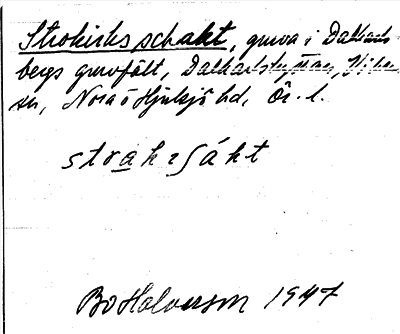 Strokirks schakt, gruva i Dalkarls-
bergs gruvfält, Dalkarlshyttan, Viker
sn, Nora o Hjulsjö hd, Ör. l.
strakɪʃákt
Bo Halvarson 1947